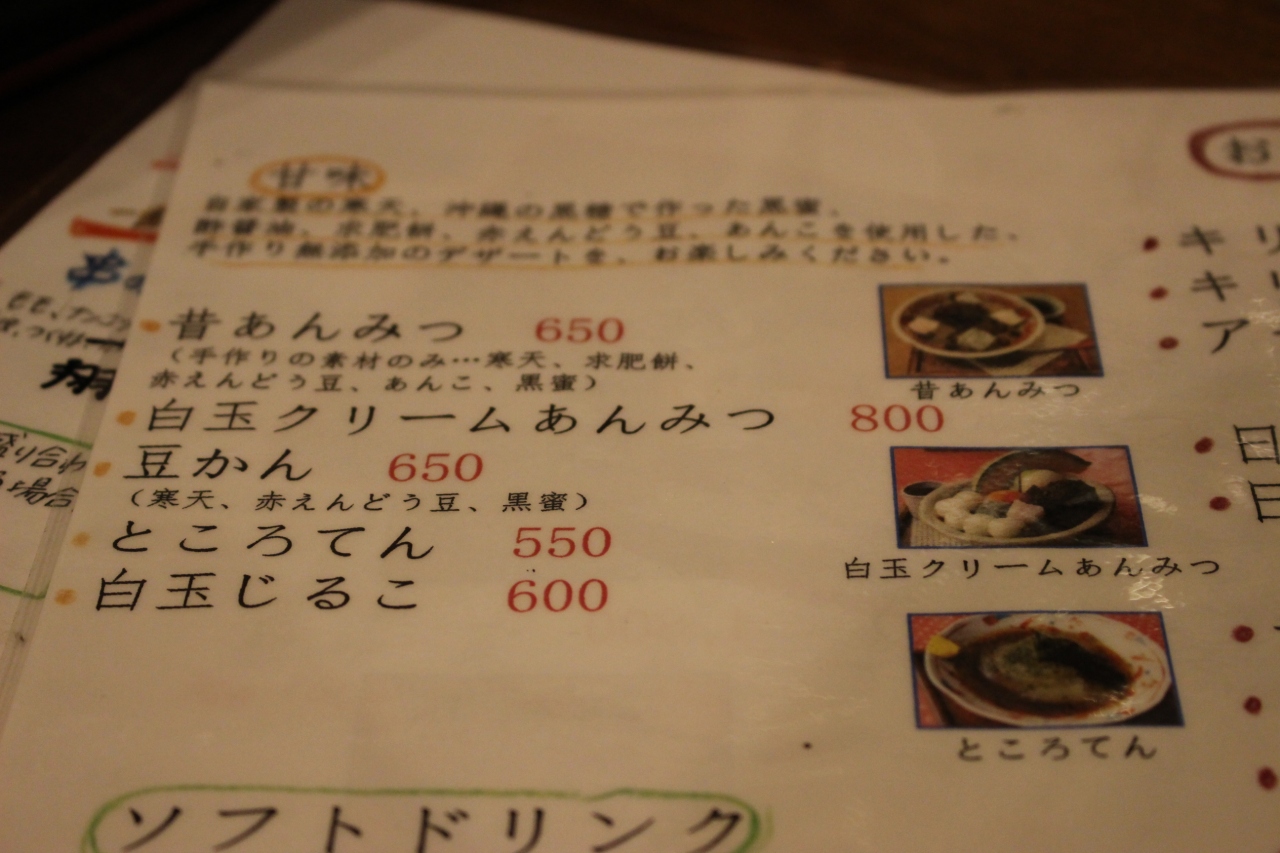 甘味
自家製の寒天、沖縄の黒糖で作った黒蜜、
酢醤油、求肥餅、赤えんどう豆、あんこを使用した、
手作り無添加のデザートを、お楽しみください。
昔あんみつ 650
(手作りの素材のみ…寒天、求肥餅、
赤えんどう豆、あんこ、黒蜜)
白玉クリームあんみつ 800
豆かん 650
(寒天、赤えんどう豆、黒蜜)
ところてん 550
白玉じるこ 600
昔あんみつ
白玉クリームあんみつ
ところてん
ソフトドリンク
お
キリ
キ
ア
日
盛り合わ
場合